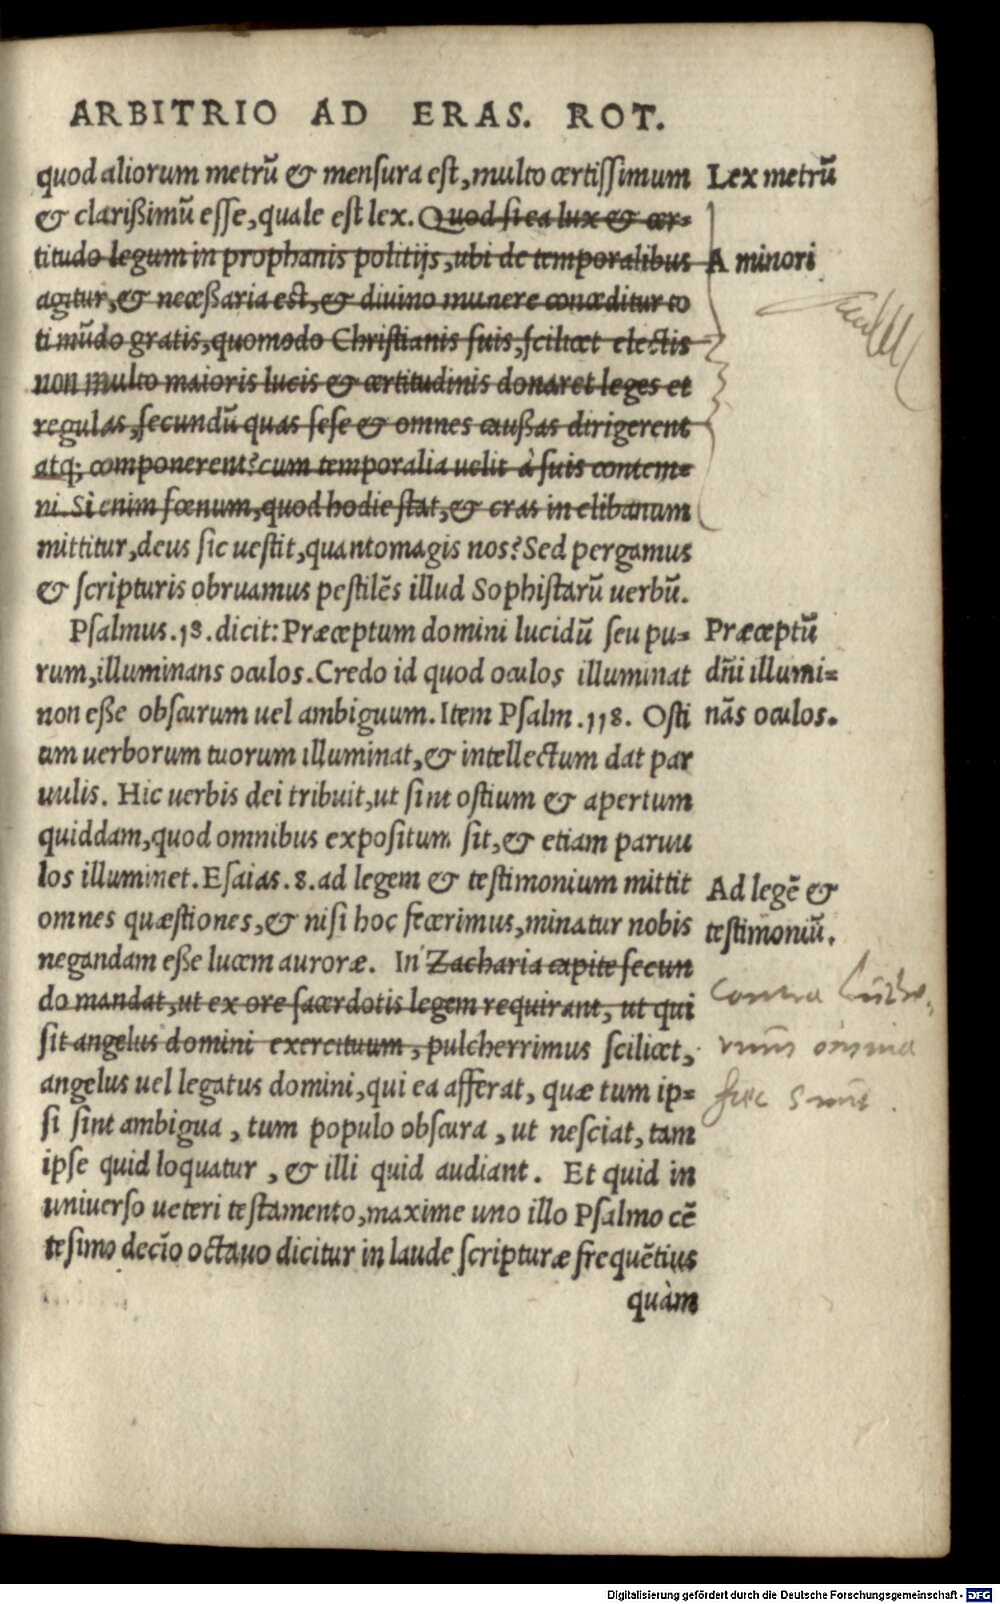 ARBITRIO AD ERAS. ROT.
quod aliorum metrũ & mensura est, multo certissimum
& clarißimũ esse, quale est lex. Quod si ea lux & cer-
titudo legum in prophanis politijs, ubi de temporalibus
agitur, & neceßaria est, & diuino munere conceditur to
ti mũdo gratis, quomodo Christianis suis, scilicet electis
non multo maioris lucis & certitudinis donaret leges et
regulas, secundũ quas sese & omnes caußas dirigerent
atq; componerent? cum temporalia uelit à suis contem-
ni. Si enim fœnum, quod hodie stat, & cras in clibanum
mittitur, deus sic uestit, quantomagis nos? Sed pergamus
& scripturis obruamus pestilẽs illud Sophistarũ uerbũ.
Psalmus .18. dicit: Præceptum domini lucidũ seu pu-
rum, illuminans oculos. Credo id quod oculos illuminat
non eße obscurum uel ambiguum. Item Psalm .118. Osti
um uerborum tuorum illuminat, & intellectum dat par
uulis. Hic uerbis dei tribuit, ut sint ostium & apertum
quiddam, quod omnibus expositum sit, & etiam paruu
los illuminet. Esaias .8. ad legem & testimonium mittit
omnes quæstiones, & nisi hoc fecerimus, minatur nobis
negandam eße lucem auroræ. In Zacharia capite secun
do mandat, ut ex ore sacerdotis legem requirant, ut qui
sit angelus domini exercituum, pulcherrimus scilicet,
angelus uel legatus domini, qui ea afferat, quæ tum ip-
si sint ambigua, tum populo obscura, ut nesciat, tam
ipse quid loquatur, & illi quid audiant. Et quid in
uniuerso ueteri testamento, maxime uno illo Psalmo cẽ
tesimo decĩo octauo dicitur in laude scripturæ frequẽtius
quàm
Lex metrũ
A minori
Præceptũ
dñi illumi-
nãs oculos.
Ad legẽ &
testimoniũ.
contra
omnia
hec sunt.
Digitalisierung gefördert durch die Deutsche Forschungsgemeinschaft - DFG